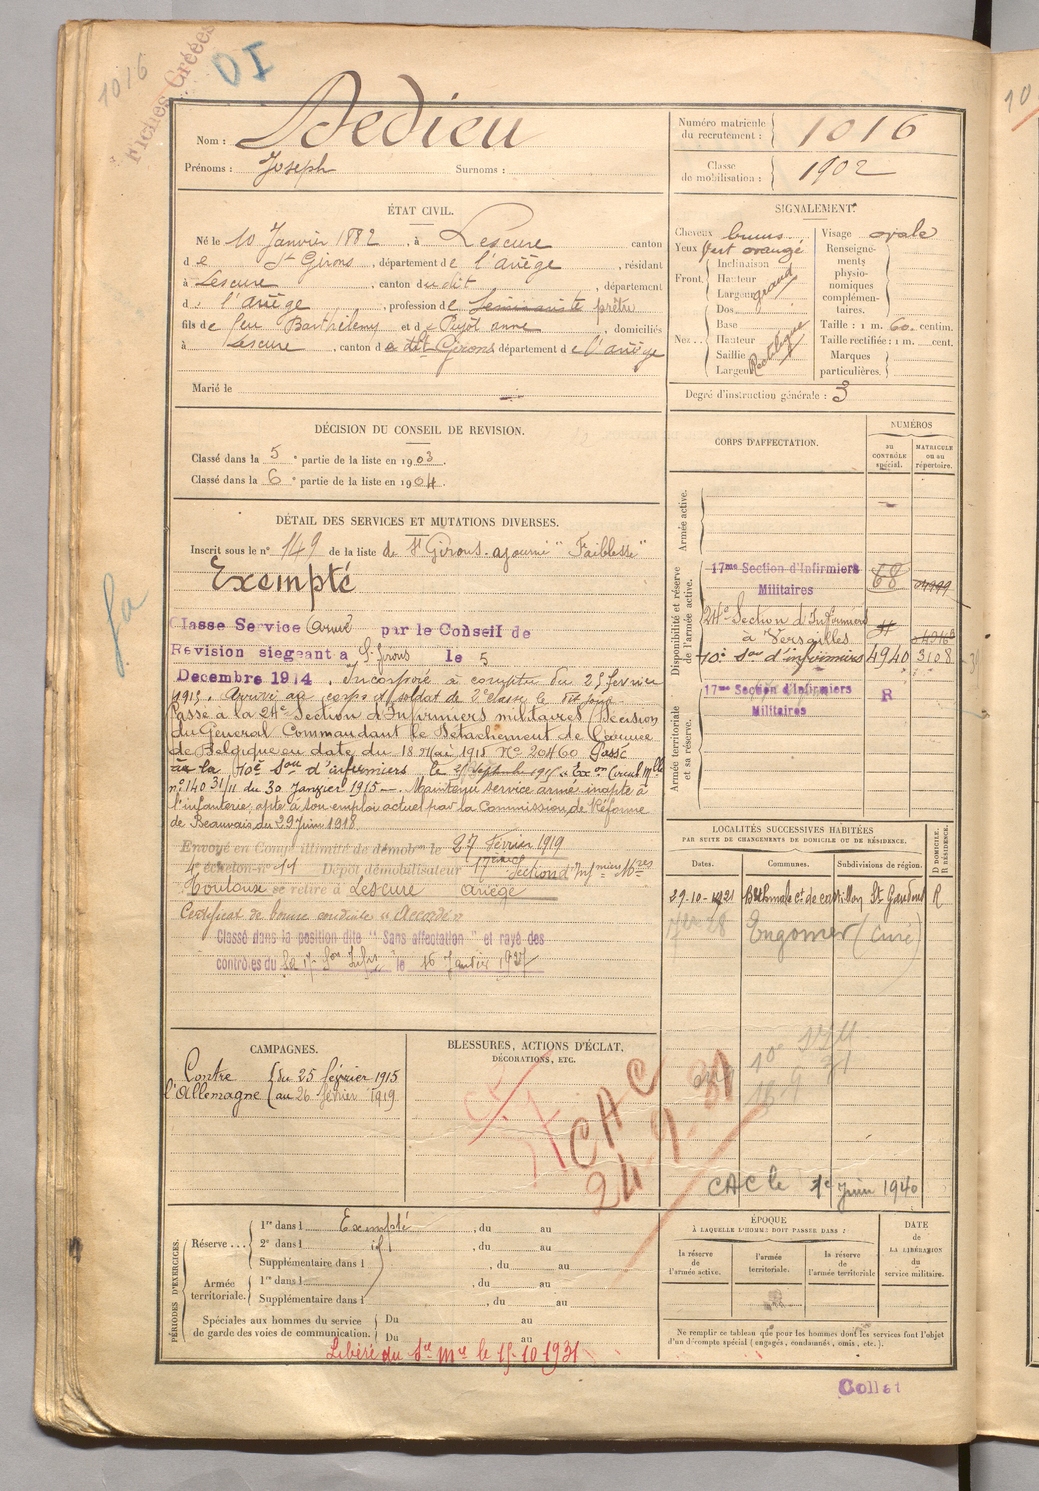 1016
Fiches Créées
DI
Nom : Dedieu
Prénoms : Joseph Surnoms :
Numéro matricule du recrutement : 1016
Classe de mobilisation : 1902
ÉTAT CIVIL.
Né le 10 Janvier 1882, à Lescure canton
de St Girons, département de l'ariège, résidant
à Lescure, canton du dit, département
de l'ariège, profession de Séminariste prêtre
fils de feu Barthélemy et de Pujol anne, domiciliés
à Lescure, canton de St Girons département de l'ariège
Marié le
SIGNALEMENT.
Cheveux bruns
Yeux vert orangé
Front
Inclinaison
Hauteur
Largeur
grand
Nez
Dos
Base
Hauteur
Saillie
Largeur
Rectiligne
Visage ovale
Renseignements physionomiques complémentaires.
Taille : 1 m. 60 centim.
Taille rectifiée : 1 m. cent.
Marques particulières.
Degré d'instruction générale : 3
DÉCISION DU CONSEIL DE REVISION.
Classé dans la 5e partie de la liste en 1903.
Classé dans la 6e partie de la liste en 1904.
DÉTAIL DES SERVICES ET MUTATIONS DIVERSES.
Inscrit sous le n° 149 de la liste de St Girons. ajourné "Faiblesse"
Exempté
Classe Service Armé par le Conseil de
Révision siegeant a St Girons le 5
Decembre 1914. Incorporé à compter du 25 fevrier
1915. Arrivé au corps et soldat de 2e classe le dit jour
Passé à la 24e Section d'Infirmiers militaires (Décision
du Général Commandant le Détachement de l'armée
de Belgique en date du 18 Mai 1915 N° 20460 Passé
à la 10e Son d'infirmiers le
n° 14031/11 du 30 Janvier 1915 Maintenu service armé inapte à
l'infanterie, apte à son emploi actuel par la Commission de Réforme
de Beauvais du 29 Juin 1918
Envoyé en Congé illimité de démobon le 27 Février 1919
4e échelon n° 11 Dépôt démobilisateur 17eme Section d'Infirmiers Mres
Toulouse se retire à Lescure Ariège
Certificat de bonne conduite "Accordé"
Classé dans la position dite "Sans affectation" et rayé des
contrôles du la 17e Son Infirs le 16 Janvier 1927
CORPS D'AFFECTATION.
NUMÉROS
au contrôle spécial.
MATRICULE ou au répertoire.
Armée active.
Disponibilité et réserve de l'armée active.
17me Section d'Infirmiers Militaires 68
24e Section d'Infirmiers à Versailles
10e Son d'infirmiers 4940 3108
Armée territoriale et sa réserve.
17me Section d'Infirmiers Militaires R
LOCALITÉS SUCCESSIVES HABITÉES
PAR SUITE DE CHANGEMENTS DE DOMICILE OU DE RÉSIDENCE.
Dates. Communes. Subdivisions de région. D DOMICILE. R RÉSIDENCE.
29-10-1921 Bethmale con de castillon St Gaudens R
Engomer (curé)
CAMPAGNES.
Contre l'Allemagne
du 25 février 1915
au 26 février 1919
BLESSURES, ACTIONS D'ÉCLAT,
DÉCORATIONS, ETC.
CAC
24-9-31
CAC le 1er Juin 1940
PÉRIODES D'EXERCICES.
Réserve...
1re dans l Exempté, du au
2e dans l id, du au
Supplémentaire dans l, du au
Armée territoriale.
1re dans l, du au
Supplémentaire dans l, du au
Spéciales aux hommes du service de garde des voies de communication.
Du au
Du au
Libéré du Sce Mre le 15-10-1931
ÉPOQUE
À LAQUELLE L'HOMME DOIT PASSER DANS :
la réserve de l'armée active.
l'armée territoriale.
la réserve de l'armée territoriale
DATE de LA LIBÉRATION du service militaire.
Ne remplir ce tableau que pour les hommes dont les services font l'objet
d'un décompte spécial (engagés, condamnés, omis, etc.).
Collat